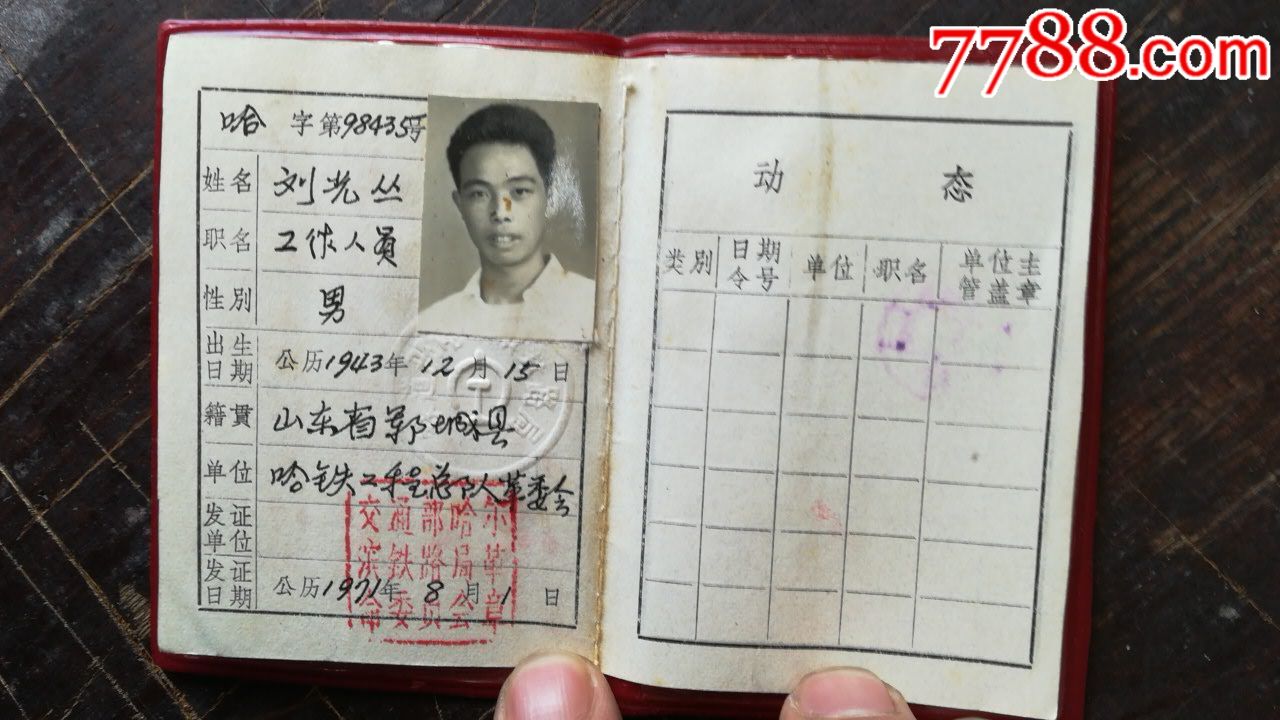 7788.com
哈 字第98435号
姓名 刘光丛
职名 工作人员
性别 男
出生日期 公历1943年12月15日
籍贯 山东省郓城县
单位 哈铁工程总队革委会
发证单位
交通部哈尔
滨铁路局革
命委员会章
发证日期 公历1971年8月1日
动态
类别 日期令号 单位 职名 单位主管盖章